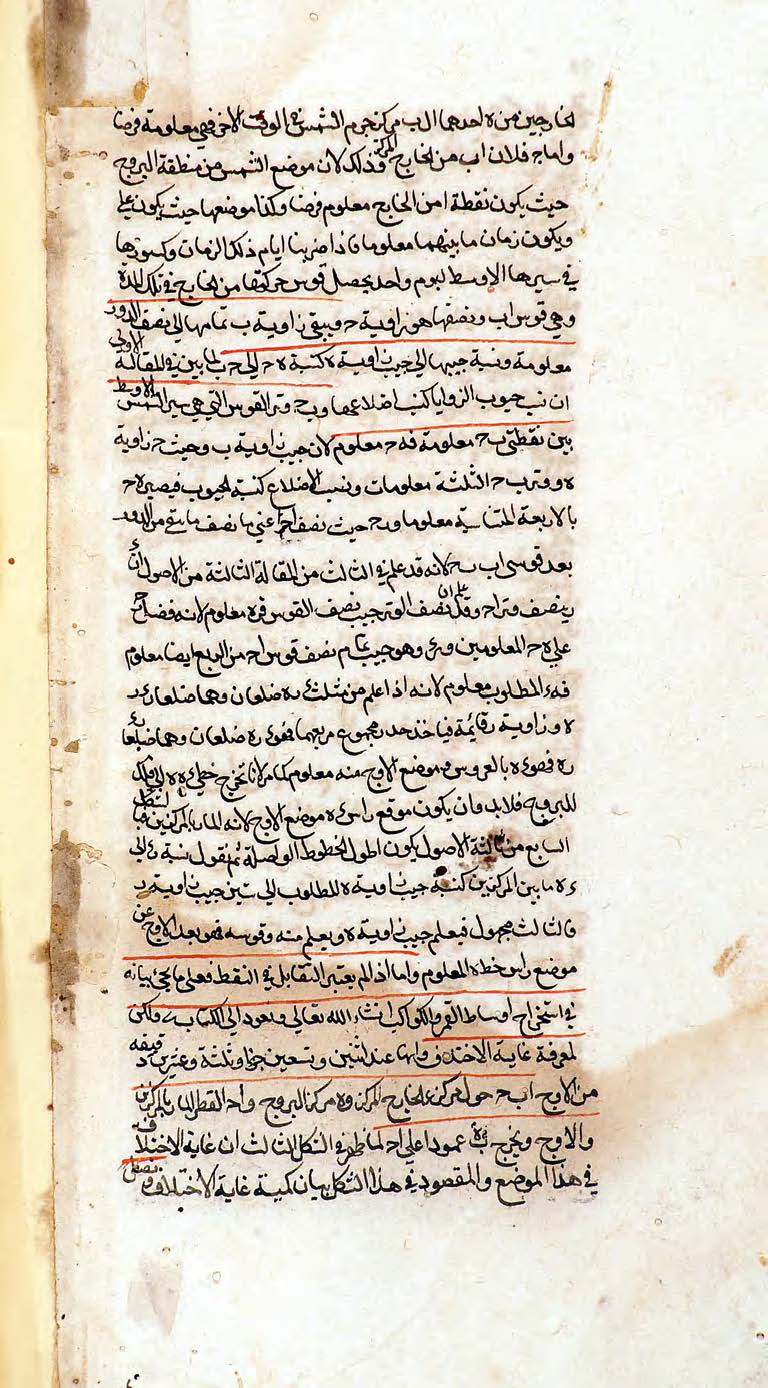 الخارجين من ه احدهما ال ب مركز جرم الشمس في الوقت الاخر فهي معلومة فرضا
واما ج فلان اب من الخارج المركز وذلك لان موضع الشمس من منطقة البروج
حيث يكون نقطة ا من الخارج معلوم فرضا وكذا موضعها حيث يكون علي
ويكون زمان ما بينهما معلوما فاذا ضربنا ايام ذلك الزمان وكسورها
في سيرها الاوسط ليوم واحد يحصل قوس حركتها من الخارج في تلك المدة
وهي قوس اب ونصفها هو زاوية ح ويبقى زاوية ب تمامها الي نصف الدور
معلومة ونسبة جيبها الي جيب زاوية ه كنسبة ه ح الي ح ب لما بين في المقالة الاولى
ان نسب جيوب الزوايا كنسب اضلاعها و ب ح وتر القوس التي هي سير الشمس الاوسط
بين نقطتي ب ح معلومة فه ح معلوم لان جيب زاوية ب وحيث ح زاوية
ه ووتر ب ح الثلثة معلومات ونسب الاضلاع كنسبة الجيوب فيصير ه ح
بالاربعة المتناسبة معلوما و رح حيث نصف ا ح اعني ما نصف ما بقي من الدور
بعد قوسي اب ب ح لانه قد علم في الثالث من المقالة الثالثة من الاصول ان ء
ر ينصف وتر ا ح وقد علم ان نصف الوتر جيب نصف القوس فره معلوم لانه فضل ا ح
على ه ح المعلومين و رء وهو جيب تمام نصف قوس ا ح من الربع ايضا معلوم
فه ء المطلوب معلوم لانه اذا علم من مثلث ء ره ضلعان وهما ضلعا رء ر
ه وزاوية ر قائمة فياخذ جذر مجموع مربعهما فهو ء ره ضلعان وهما ضلعا رء
ره فهو ء ه بالعروس وموضع الاوج منه معلوم كما مر لانا نخرج خطي ء ه ه الي فلك
البروج فلا بد وان يكون موقع راس ء ه موضع الاوج لانه المار بالمركزين
السابع من ثالثة الاصول يكون اطول الخطوط الواصلة ثم نقول نسبة رء الي
ء ه ما بين المركزين كنسبة جيب زاوية ه المطلوب الي ستين جيب زاوية ر
فالثالث مجهول فيعلم جيب زاوية ه ويعلم منه وقوسه فهو بعد الاوج عن
موضع راس خط ه المعلوم واما اذا لم يعتبر التقابل في النقط فعلى ما يجئ بيانه
في استخراج اوساط القمر والكواكب انشاء الله تعالي ونعود الي الكتاب ه ولكن
لمعرفة غاية الاختلاف وانها عند اثنين وتسعين جزءا وثلثة وعشرين دقيقه
من الاوج اب ح حول مركز ء الخارج المركز وه مركز البروج و ا ح القطر المار بالمركزين
والاوج ونخرج ب ه عمودا علي ا ح لما ظهر في الشكل الثالث ان غاية الاختلاف
في هذا الموضع والمقصود في هذا الشكل بيان كمية غاية الاختلاف و نصل